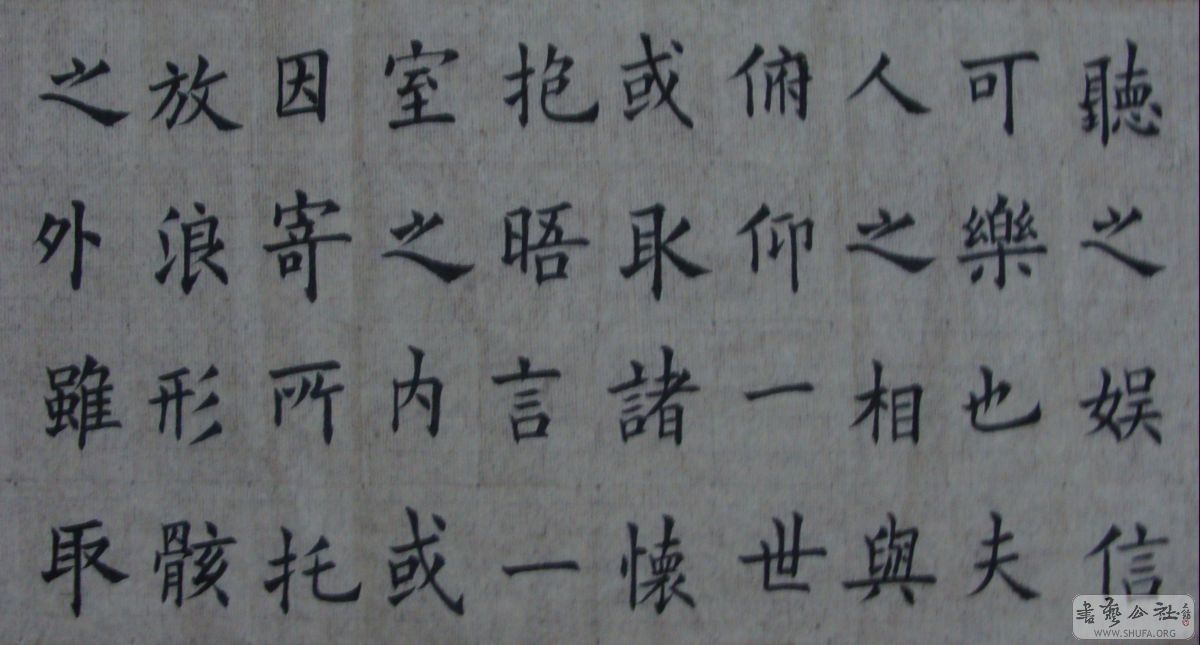 聽之娱信
可樂也夫
人之相與
俯仰一世
或取諸懷
抱晤言一
室之内或
因寄所托
放浪形骸
之外雖取
書藝公社
WWW.SHUFA.ORG